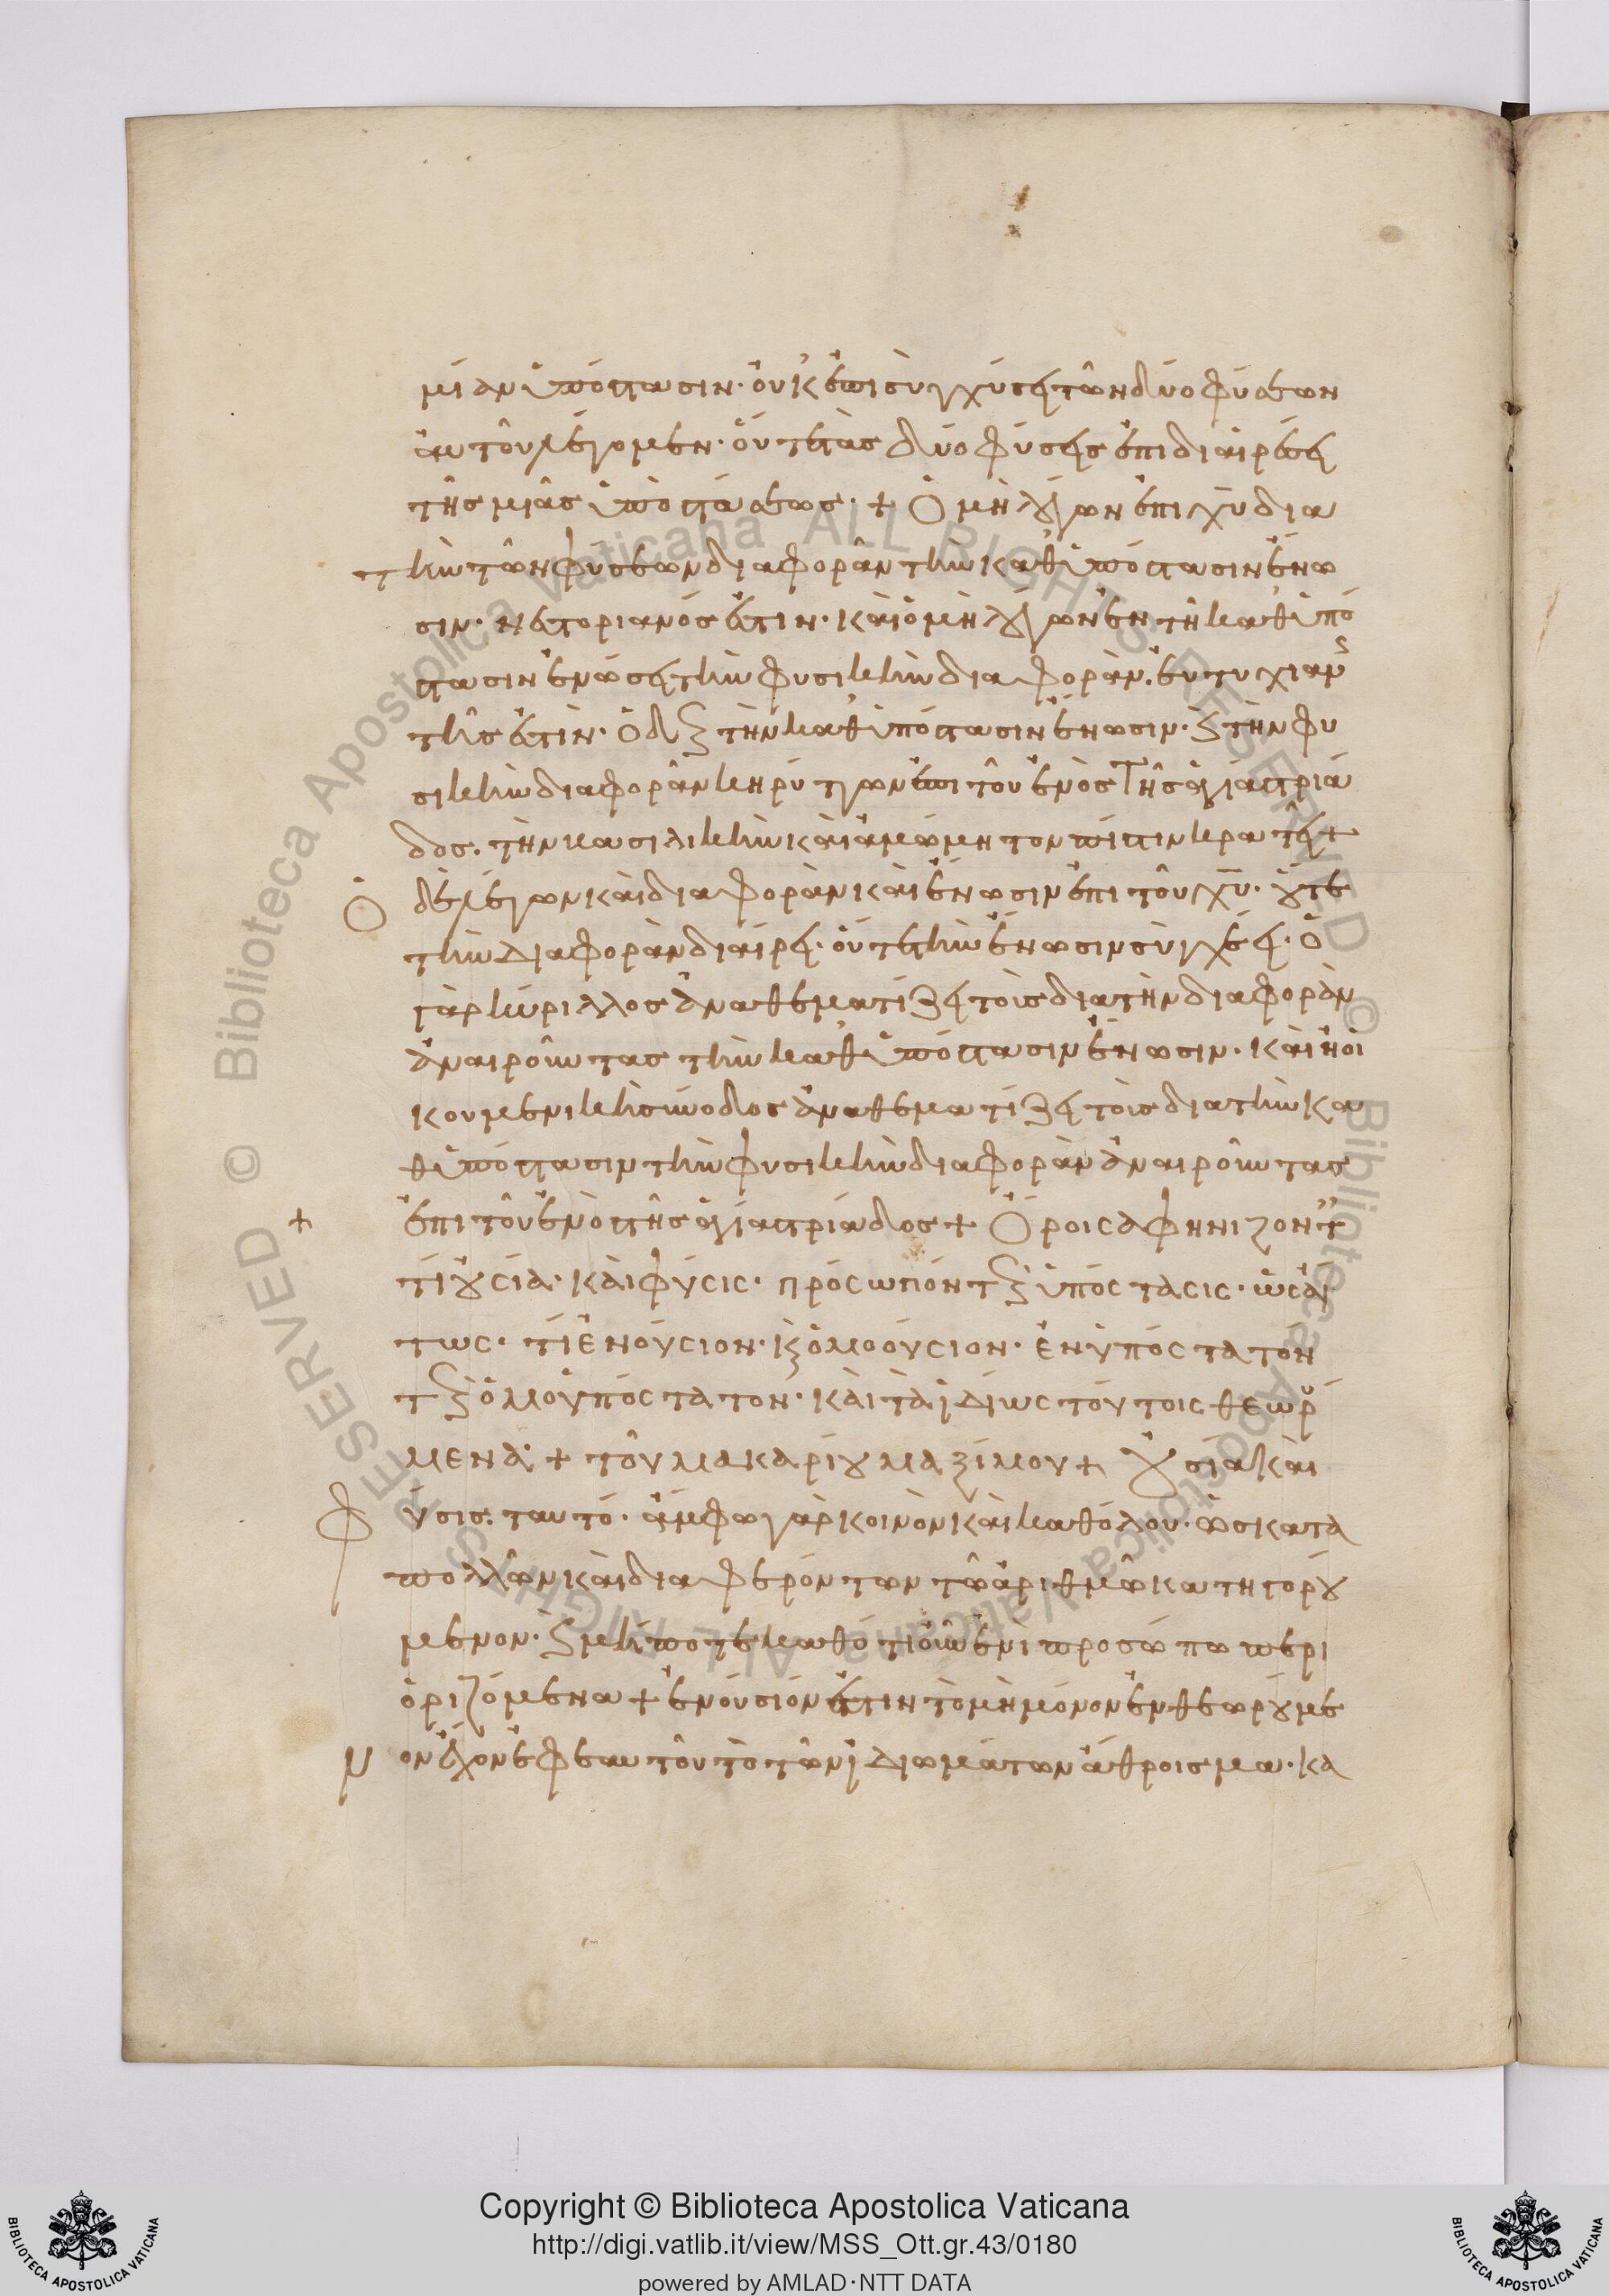 μίαν ὑπόστασιν· οὐκ ἐπι συγχύσει τῶν δύο φύσεων
αὐτοῦ λέγομεν· οὔτε τὰς δύο φύσεις ἐπι διαιρέσει
τῆς μιᾶς ὑποστάσεως· + Ὁ μὴ λέγων ἐπι χυ δια
τὴν τῶν φύσεων διαφορὰν τὴν καθ ὑπόστασιν ἕνω
σιν· νεστοριανός ἐστιν· καὶ ὁ μὴ λέγων ἐν τῆ καθ ὑπό
στασιν ἑνώσει τὴν φυσικὴν διαφοράν· ευτυχιαν
τής ἐστὶν· ὁ δὲ ϗ τὴν καθ ὑπόστασιν ἕνωσιν· ϗ τὴν φυ
σικὴν διαφορὰν κηρύττων ἐπι τοῦ ἑνὸς τῆς ἁγίας τριά
δος· τὴν βασιλικὴν καὶ ἀμώμητον πίστιν κρατεῖ +
Ὁ δὲ λέγων καὶ διαφορὰν καὶ ἕνωσιν ἐπι τοῦ χυ· οὔτε
τὴν διαφορὰν διαιρεῖ· οὔτε τὴν ἕνωσιν συγχέει· ὁ
γὰρ κύριλλος ἀναθεματίζει τοὺς δια τὴν διαφορὰν
ἀναιροῦντας τὴν καθ ὑπόστασιν ἕνωσιν· καὶ ἡ οἰ
κουμενικὴ σύνοδος ἀναθεματίζει τοὺς δια τὴν κα
θ ὑπόστασιν τὴν φυσικὴν διαφορὰν ἀναιροῦντας
+ ἐπι τοῦ ἑνὸς τῆς ἁγίας τριάδος + Ὅροι σαφηνίζοντ
τί οὐσία· καὶ φύσις· πρόσωπόν τε ϗ ὑπόστασις· ὡσαύ
τως· τί ἐνούσιον· ϗ ὁμοούσιον· ἐνυπόστατόν
τε ϗ ὁμοϋπόστατον· καὶ τὰ ἰδίως τούτοις θεωρού
μενα + τοῦ μακαρίου μαξίμου + Οὐσία καὶ
φύσις· ταυτό· ἄμφω γὰρ κοινὸν καὶ καθόλου· ὡς κατα
πολλῶν καὶ διαφερόντων τῶ ἀριθμῶ κατηγορού
μενον· ϗ μήποτε καθότιοῦν ἑνὶ προσώπω περι
οριζόμενα + ἐνούσιόν ἐστιν τὸ μὴ μόνον ἐνθεωρούμε
νον ἔχον ἐφ εαυτοῦ τὸ τῶν ἰδιωμάτων ἄθροισμα· κα
Copyright © Biblioteca Apostolica Vaticana
http://digi.vatlib.it/view/MSS_Ott.gr.43/0180
powered by AMLAD·NTT DATA